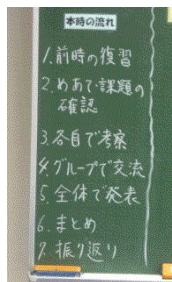 本時の流れ
1.前時の復習
2.めあて・課題の
確認
3.各自で考察
4.グループで交流
5.全体で発表
6.まとめ
7.振り返り